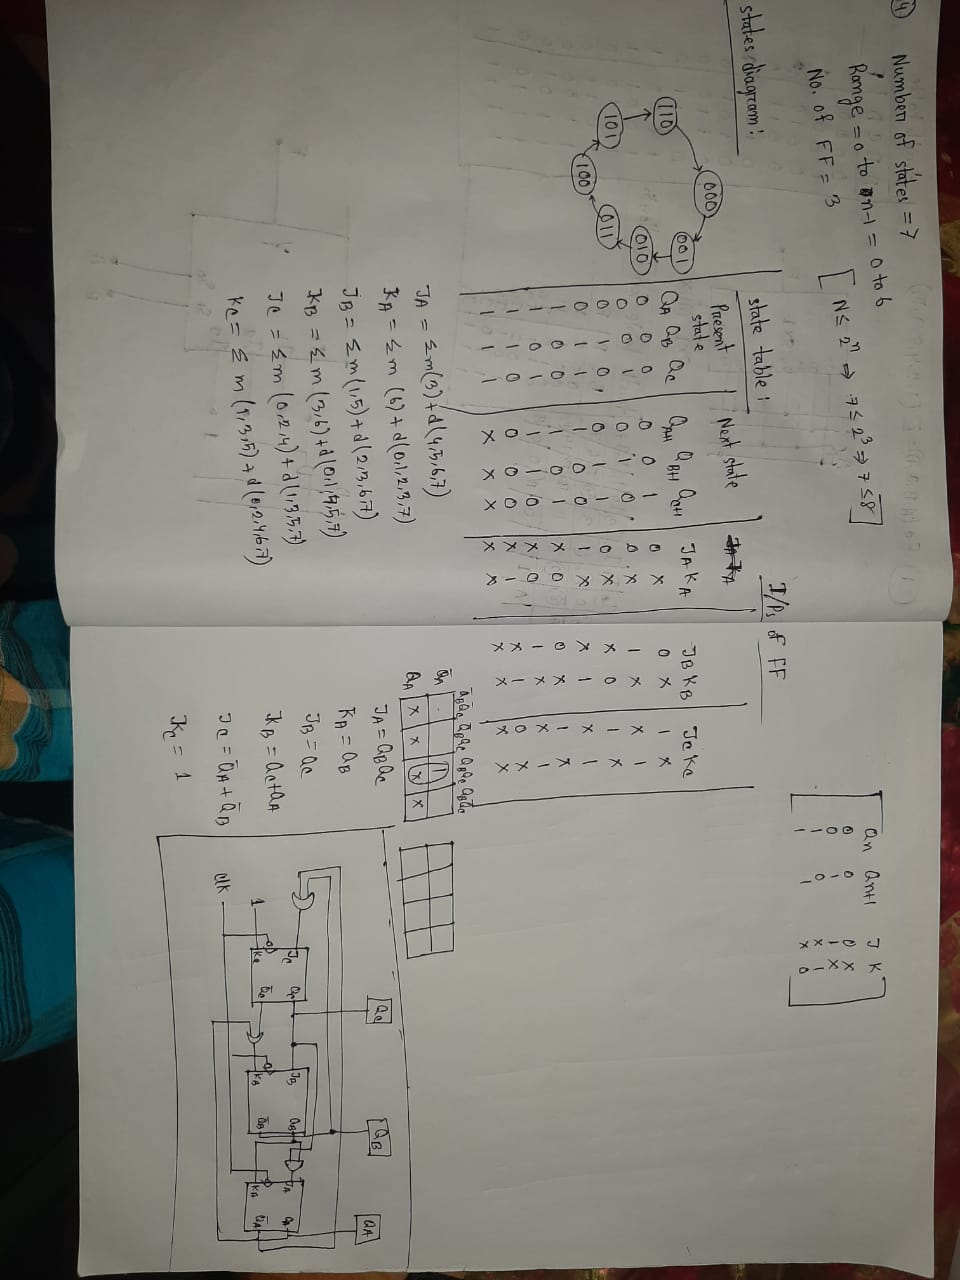 4) Number of states = 7
Range = 0 to n-1 = 0 to 6
No. of FF = 3 [N ≤ 2ⁿ ⇒ 7 ≤ 2³ ⇒ 7 ≤ 8]
states diagram:
000
001
010
011
100
101
110
state table:
I/Ps of FF
Present state Next state
QA QB QC QA+1 QB+1 QC+1 JA KA JB KB JC KC
0 0 0 0 0 1 0 X 0 X 1 X
0 0 1 0 1 0 0 X 1 X X 1
0 1 0 0 1 1 0 X X 0 1 X
0 1 1 1 0 0 1 X X 1 X 1
1 0 0 1 0 1 X 0 0 X 1 X
1 0 1 1 1 0 X 0 1 X X 1
1 1 0 0 0 0 X 1 X 1 0 X
1 1 1 X X X X X X X X X
Qn Qn+1 J K
0 0 0 X
0 1 1 X
1 0 X 1
1 1 X 0
JA = Σm(3) + d(4,5,6,7)
KA = Σm (6) + d(0,1,2,3,7)
JB = Σm(1,5) + d(2,3,6,7)
KB = Σm (3,6) + d(0,1,4,5,7)
JC = Σm (0,2,4) + d(1,3,5,7)
KC = Σm (1,3,5) + d(0,2,4,6,7)
Q̄BQ̄C Q̄BQC QBQC QBQ̄C
Q̄A 1
QA X X X X
JA = QBQC
KA = QB
JB = QC
KB = QC+QA
JC = Q̄A + Q̄B
KC = 1
QC QB QA
JC QC JB QB JA QA
KC Q̄C KB Q̄B KA Q̄A
1
clk